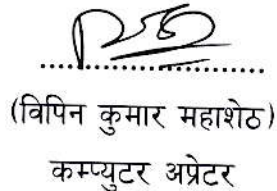 ....................................
(विपिन कुमार महाशेठ)
कम्प्युटर अप्रेटर